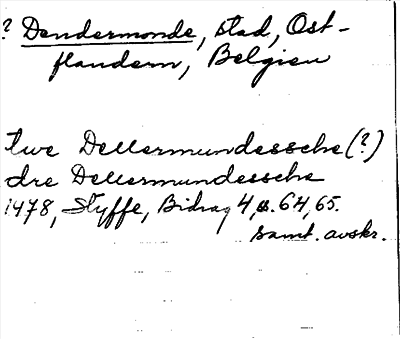 ? Dendermonde, stad, Ost-
flandern, Belgien
twe Dellermundessche (?)
dre Dellermundessche
1478, Styffe, Bidrag 4, s. 64, 65.
samt. avskr.